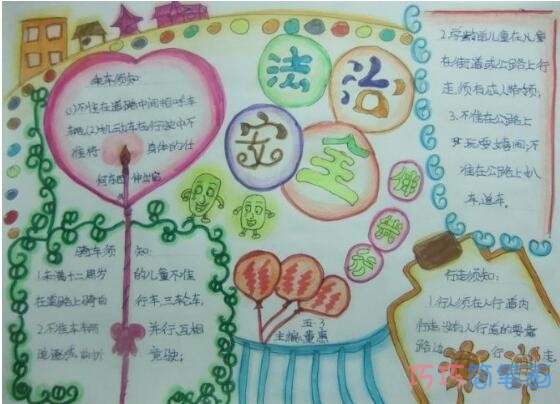 乘车须知:
(1)不准在道路中间招呼车
车辆(2)机动车在行驶中不
准将 身体的任
何东西 伸出窗
外
法治
安全
伴我行
2.学龄前儿童在儿童
在街道或公路上行
走,须有成人带领;
3.不准在公路上
玩耍嬉闹;不
准在公路上扒
车,追车。
骑车须 知:
1.未满十二周岁 的儿童不准
在道路上骑自 行车、三轮车,
2.不准车车两 并行、互相
追逐或曲折 竞驶;
五·3
主编:董惠
行走须知:
1.行人须在人行道内
行走,没有人行道的要靠
路边 行 走
巧巧简笔画